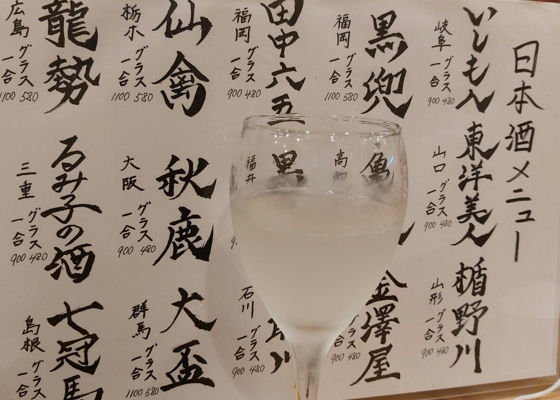 日本酒メニュー
いしもん
岐阜 グラス 480
一合 900
東洋美人
山口 グラス 480
一合 900
楯野川
山形 グラス 480
一合 900
黒兜
福岡 グラス 580
一合 1100
魚
高
金澤屋
グラス
一合 900
田中六五
福岡 グラス 480
一合 900
黒
福井
川
石川 グラス 480
一合 900
仙禽
栃木 グラス 580
一合 1100
秋鹿
大阪 グラス 480
一合 900
大盃
群馬 グラス 580
一合 1100
龍勢
広島 グラス 580
一合 1100
るみ子の酒
三重 グラス 480
一合 900
七冠馬
島根 グラス
一合